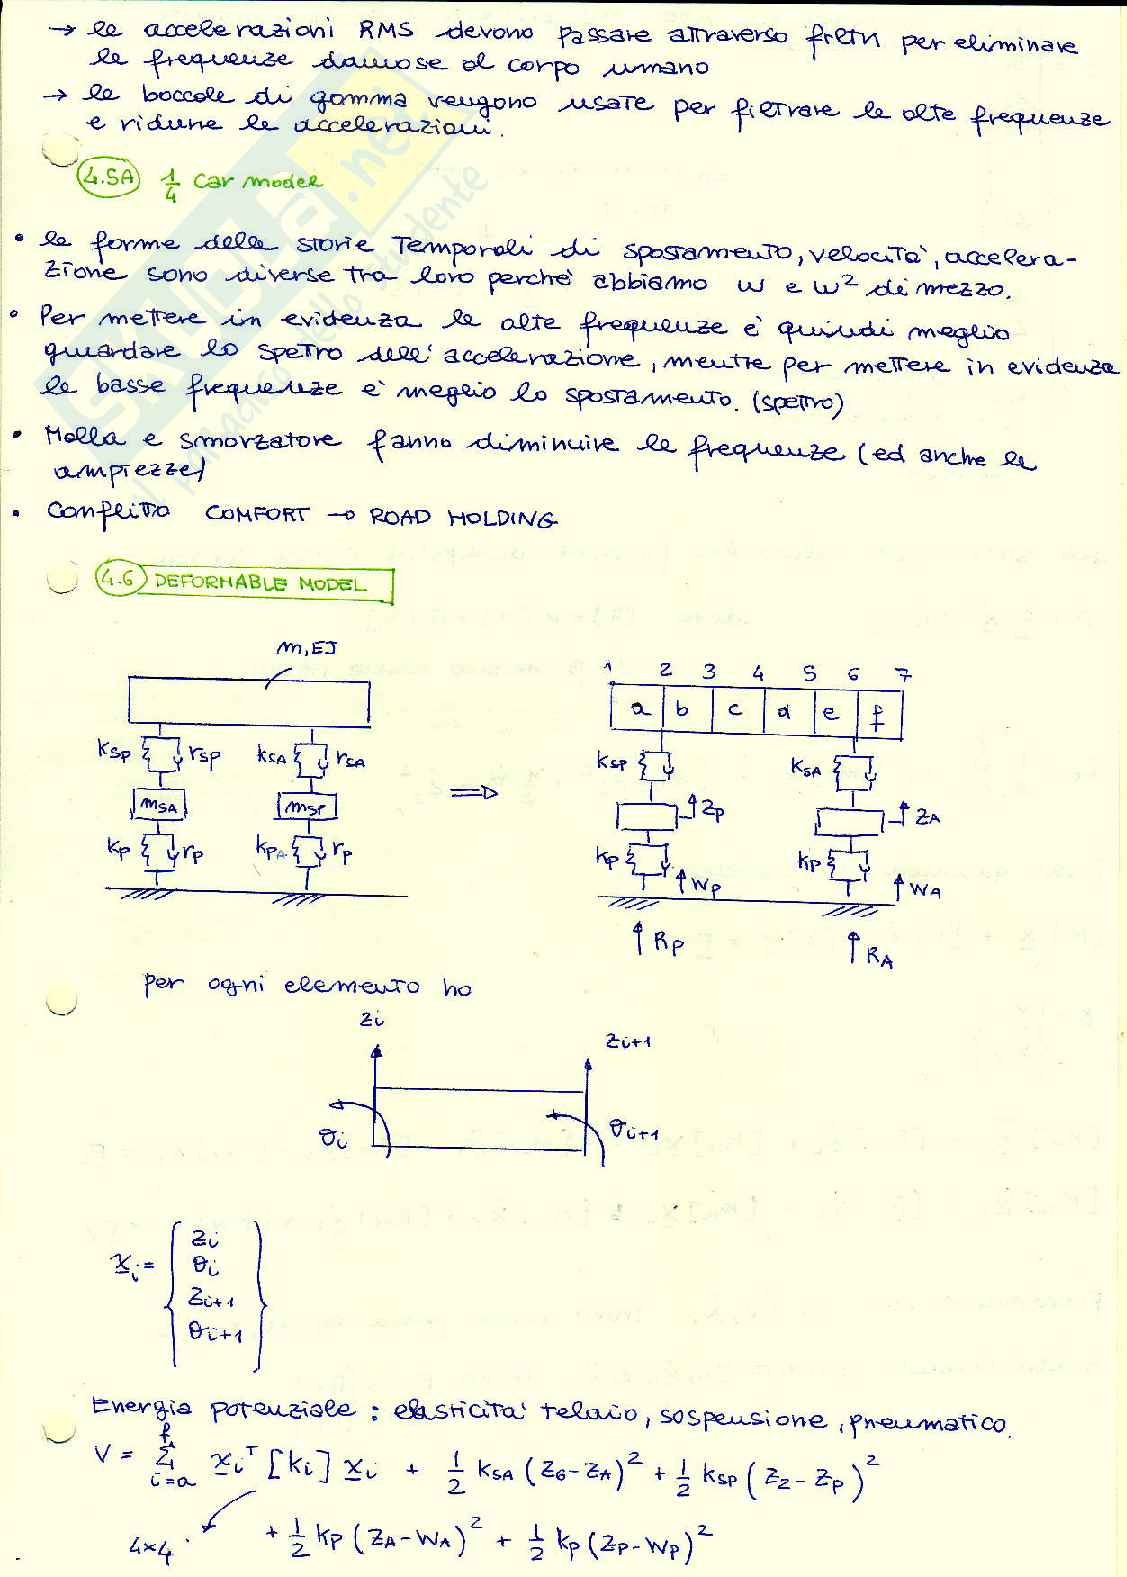 → le accelerazioni RMS devono passare attraverso filtri per eliminare
le frequenze dannose al corpo umano
→ le boccole di gomma vengono usate per filtrare le alte frequenze
e ridurre le accelerazioni.
4.5A 1/4 car model
• le forme delle storie temporali di spostamento, velocità, accelera-
zione sono diverse tra loro perchè abbiamo ω e ω² di mezzo.
• Per mettere in evidenza le alte frequenze è quindi meglio
guardare lo spetro dell'accelerazione, mentre per mettere in evidenza
le basse frequenze è meglio lo spostamento. (spettro)
• Molla e smorzatore fanno diminuire le frequenze (ed anche le
ampiezze)
• Conflitto COMFORT → ROAD HOLDING
4.6 DEFORMABLE MODEL
m, EJ
kSP rSP kSA rSA
mSA mSP
kP rP kPA rP
⇒
1 2 3 4 5 6 7
a b c d e f
kSP kSA
zP zA
kP wP kP wA
RP RA
per ogni elemento ho
zi zi+1
θi θi+1
xi = { zi
θi
zi+1
θi+1 }
Energia potenziale: elasticità telaio, sospensione, pneumatico.
V = Σ(i=a→f) xiᵀ [ki] xi + 1/2 kSA (z6 - zA)² + 1/2 kSP (z2 - zP)²
4×4 + 1/2 kP (zA - wA)² + 1/2 kP (zP - wP)²